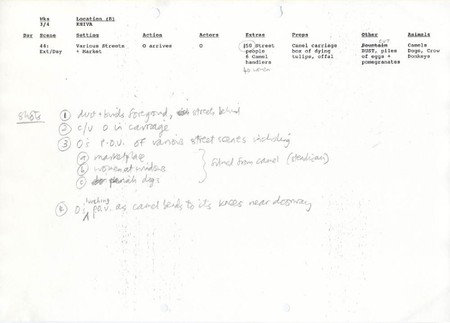 Wks Location (E)
3/4 KHIVA
Day Scene Setting Action Actors Extras Props Other Animals
44: Various Streets O arrives O 150 Street Camel carriage Fountain Camels
Ext/Day + Market people box of dying DUST, piles Dogs, Crow
6 Camel tulips, offal of eggs + Donkeys
handlers pomegranates
SHOTS
1 dust + birds foreground, streets behind
2 c/u O in carriage
3 O: P.O.V. of various street scenes including
a marketplace
b women at windows filmed from camel (steadicam)
c pariah dogs
4 O: looking P.O.V. as camel bends to its knees near doorway